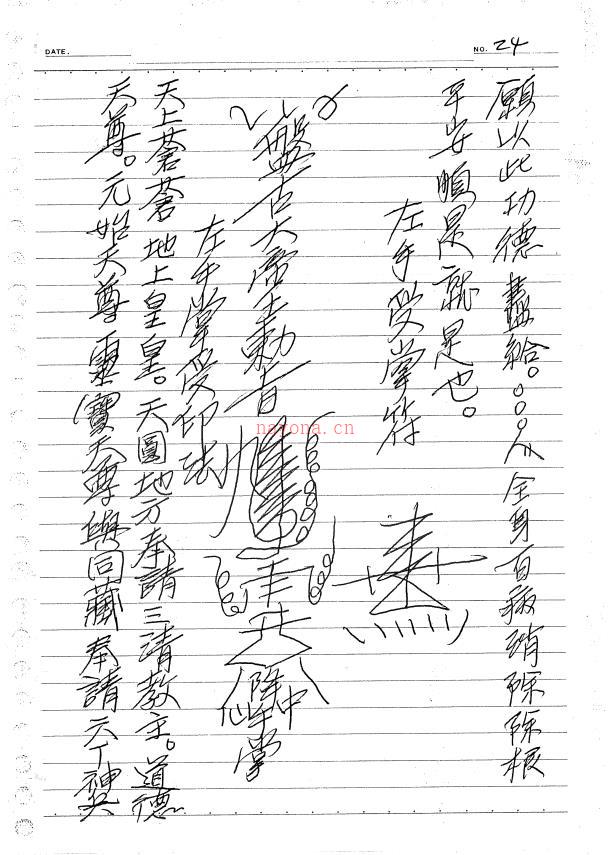 DATE.
NO. 24
願以此功德盡給。○○○人全身百病消除除根
平安順是就是也。
左手受掌符
盤古大帝 勅旨
降 中 仙 掌
左手掌受印法
天上蒼蒼地上皇皇。天圓地方奉請三清教主。道德
天尊。元始天尊靈寶天尊 同藏奉請六丁神
nayona.cn